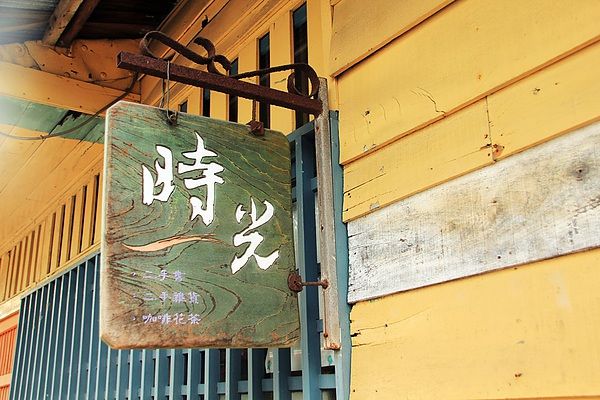 時光
·二手書
·二手雜貨
·咖啡花茶